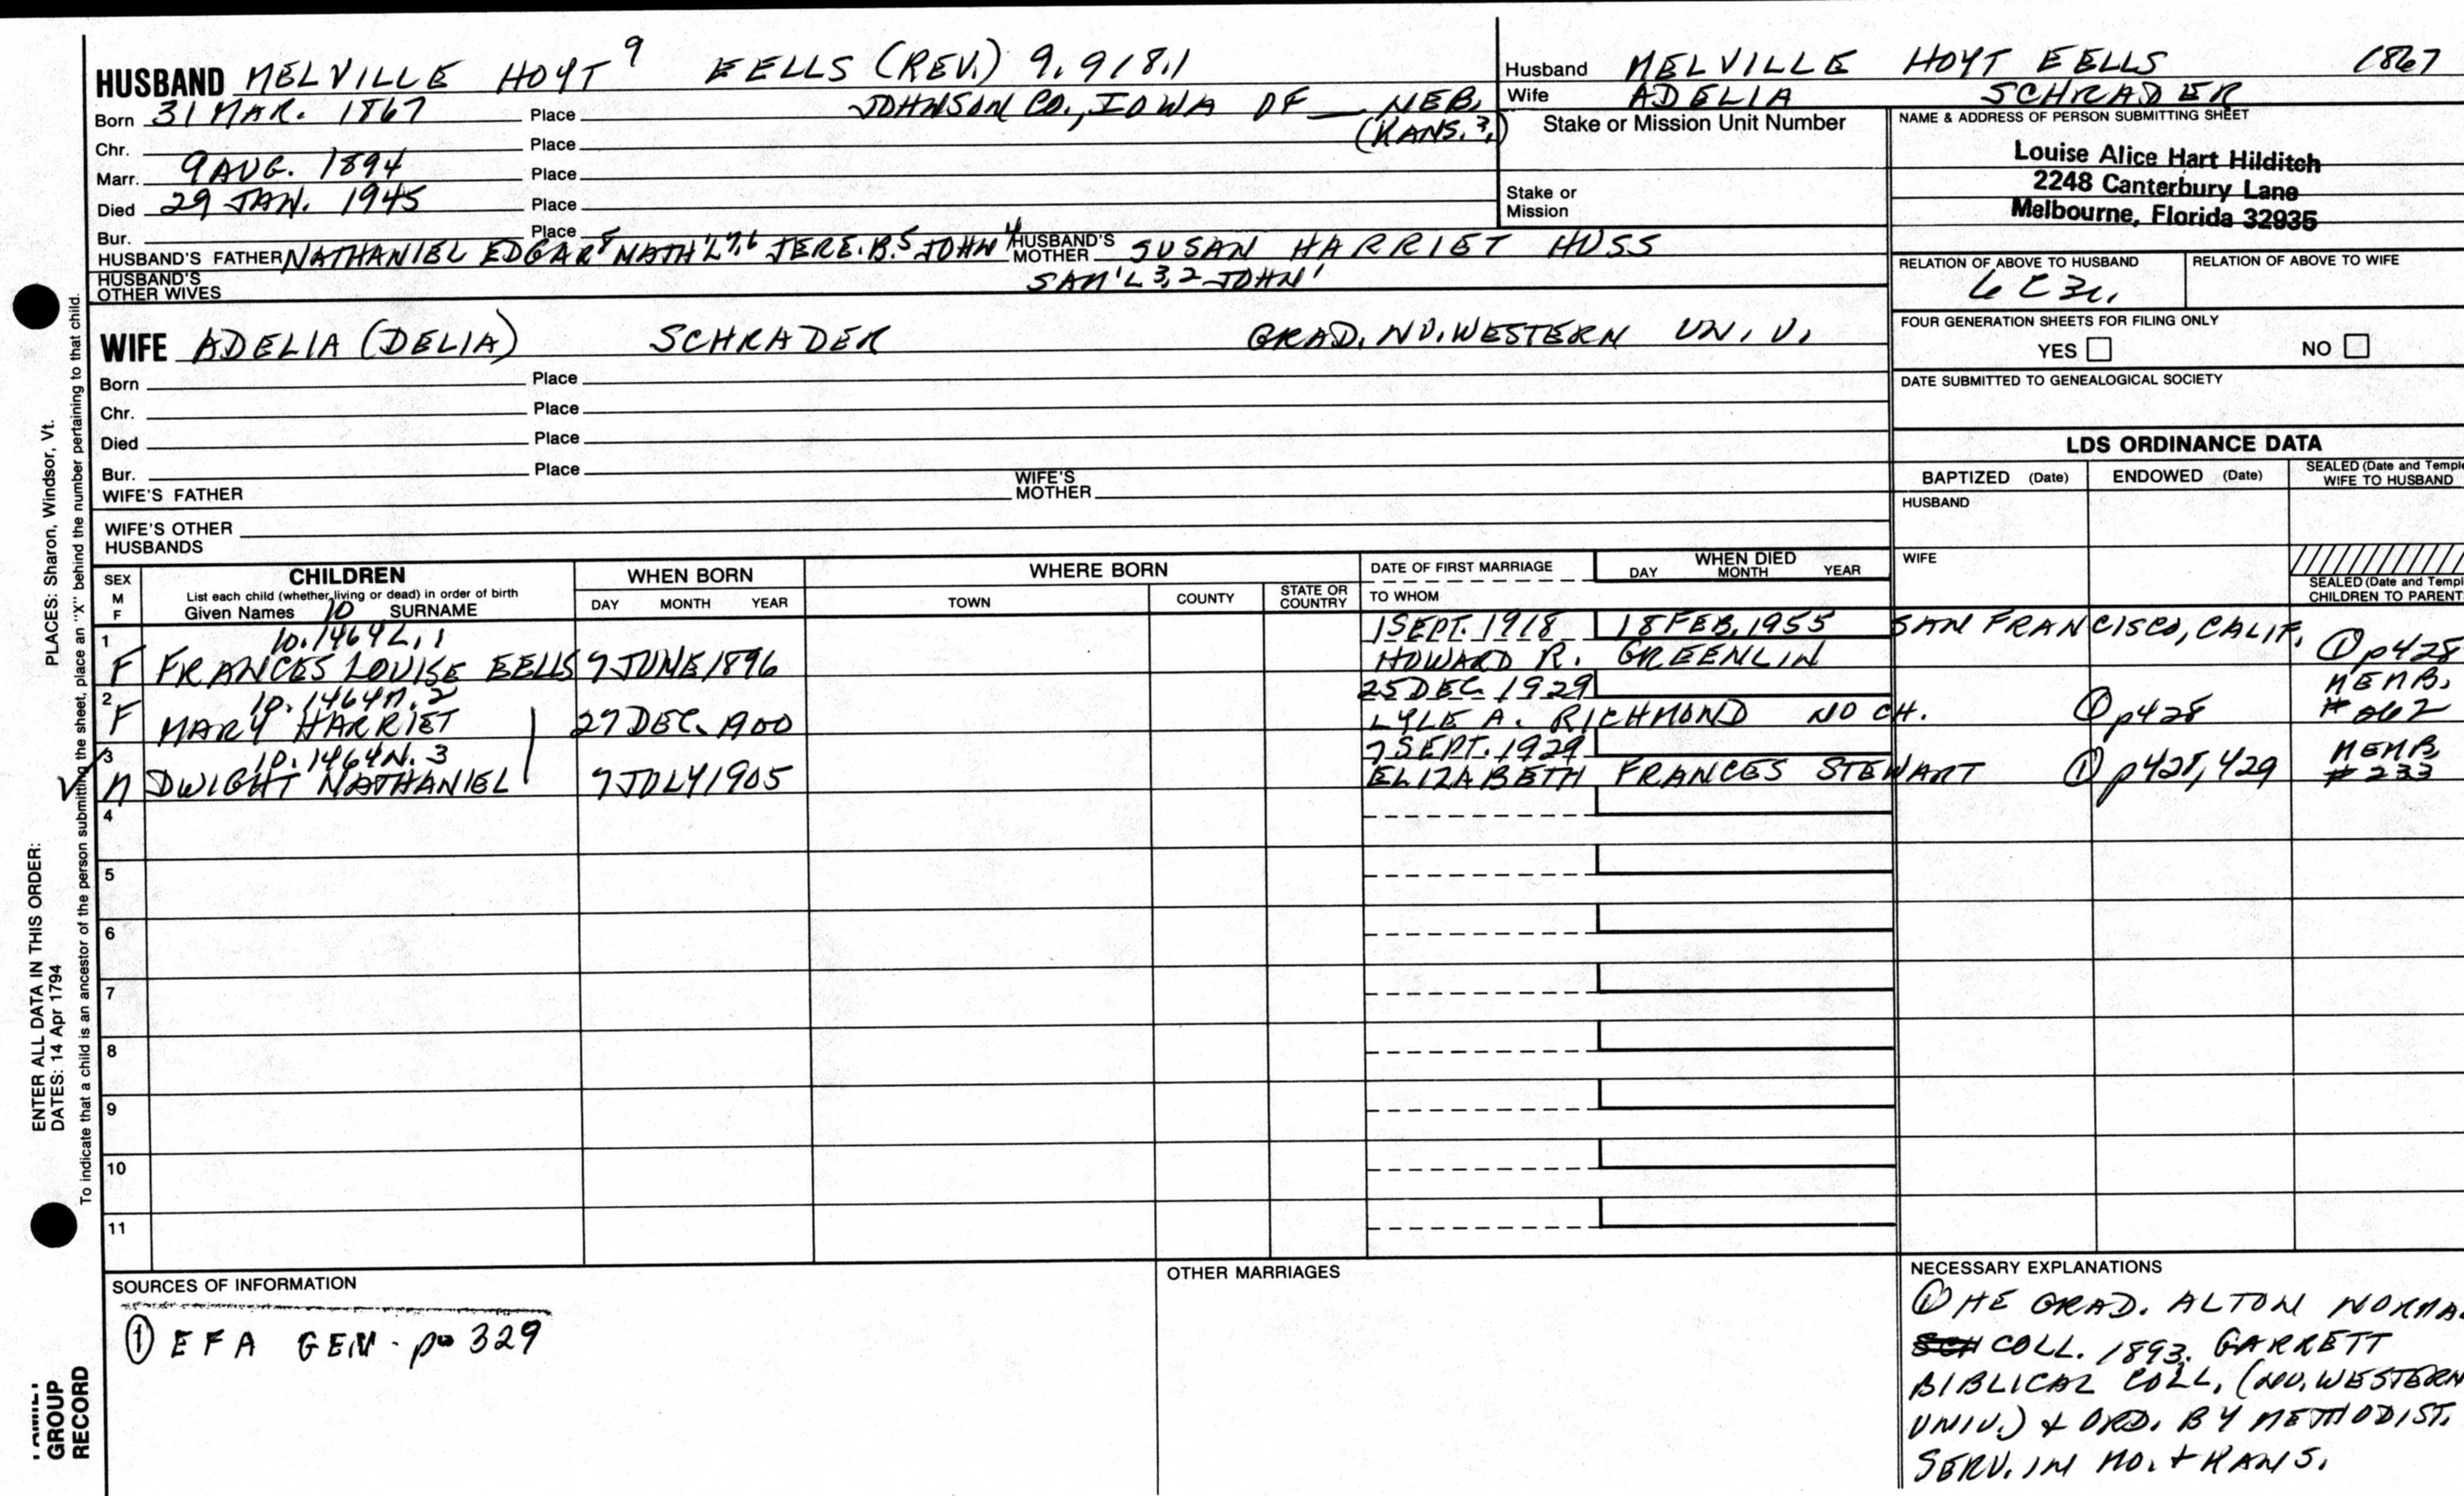 HUSBAND MELVILLE HOYT 9 EELLS (REV.) 9.918.1
Born 31 MAR. 1867 Place JOHNSON CO., IOWA OF NEB.
(KANS.?)
Chr. Place
Marr. 9 AUG. 1894 Place
Died 29 JAN. 1945 Place
Bur. Place
HUSBAND'S FATHER NATHANIEL EDGAR 8 NATH'L 7,6 JERE. B. 5 JOHN 4 HUSBAND'S MOTHER SUSAN HARRIET HUSS
SAM'L 3,2 JOHN 1
HUSBAND'S OTHER WIVES
Husband MELVILLE HOYT EELLS 1867
Wife ADELIA SCHRADER
Stake or Mission Unit Number
Stake or Mission
NAME & ADDRESS OF PERSON SUBMITTING SHEET
Louise Alice Hart Hilditch
2248 Canterbury Lane
Melbourne, Florida 32935
RELATION OF ABOVE TO HUSBAND RELATION OF ABOVE TO WIFE
6 C 3r.
FOUR GENERATION SHEETS FOR FILING ONLY
YES NO
DATE SUBMITTED TO GENEALOGICAL SOCIETY
WIFE ADELIA (DELIA) SCHRADER GRAD. NO. WESTERN UN. U.
Born Place
Chr. Place
Died Place
Bur. Place
WIFE'S FATHER WIFE'S MOTHER
WIFE'S OTHER HUSBANDS
LDS ORDINANCE DATA
BAPTIZED (Date) ENDOWED (Date) SEALED (Date and Temple) WIFE TO HUSBAND
HUSBAND
WIFE
SEALED (Date and Temple) CHILDREN TO PARENTS
SEX M F
CHILDREN
List each child (whether living or dead) in order of birth
Given Names 10 SURNAME
WHEN BORN
DAY MONTH YEAR
WHERE BORN
TOWN COUNTY STATE OR COUNTRY
DATE OF FIRST MARRIAGE
TO WHOM
WHEN DIED
DAY MONTH YEAR
1 10.1464L.1 1 SEPT. 1918 18 FEB. 1955 SAN FRANCISCO, CALIF.
F FRANCES LOUISE EELLS 7 JUNE 1896 HOWARD R. GREENLIN ① p428
2 10.1464M.2 25 DEC. 1929 MEMB.
F MARY HARRIET 27 DEC. 1900 LYLE A. RICHMOND NO CH. ① p428 # 062
3 10.1464N.3 7 SEPT. 1929 MEMB
M DWIGHT NATHANIEL 7 JULY 1905 ELIZABETH FRANCES STEWART ① p428, 429 # 233
4
5
6
7
8
9
10
11
SOURCES OF INFORMATION
① EFA GEN - p 329
OTHER MARRIAGES
NECESSARY EXPLANATIONS
① HE GRAD. ALTON NORMAL
SCH COLL. 1893. GARRETT
BIBLICAL COLL. (NO. WESTERN
UNIV.) & ORD. BY METHODIST.
SERV. IN MO. & KANS.
PLACES: Sharon, Windsor, Vt.
ENTER ALL DATA IN THIS ORDER:
DATES: 14 Apr 1794
To indicate that a child is an ancestor of the person submitting the sheet, place an "X" behind the number pertaining to that child.
GROUP
RECORD